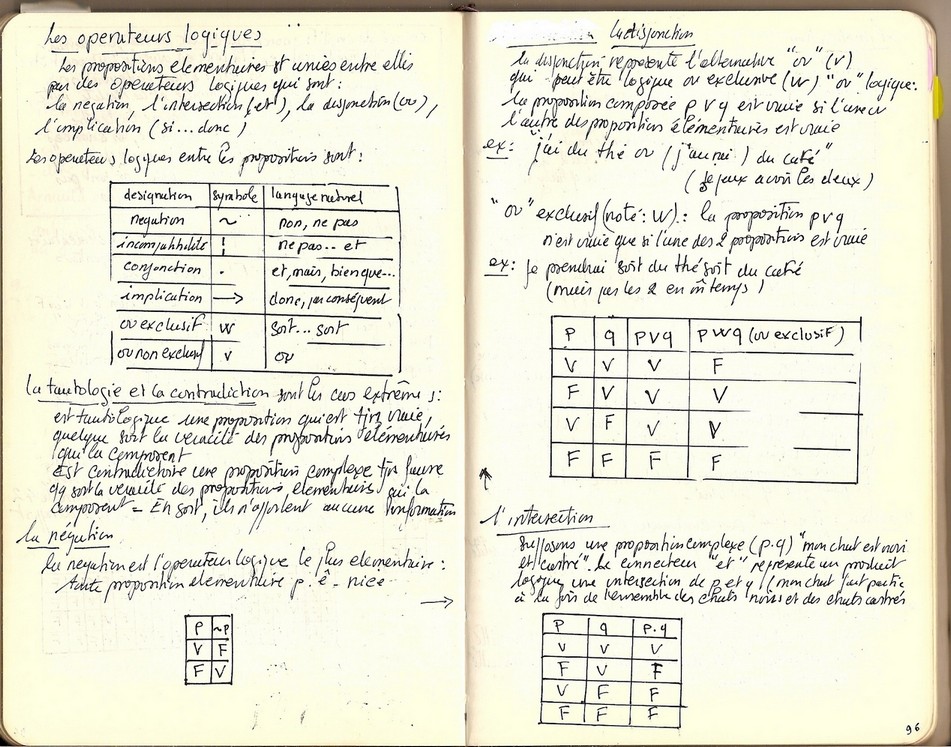 Les operateurs logiques
Les propositions elementaires st unies entre elles
par des operateurs logiques qui sont:
la negation, l'intersection (et), la disjonction (ou),
l'implication (si...donc)
Les operateurs logiques entre les propositions sont:
designation symbole langue naturel
negation ~ non, ne pas
incompatibilité ¦ ne pas.. et
conjonction . et, mais, bien que...
implication → donc, par conséquent
ou exclusif w soit... soit
ou non exclusif v ou
La tautologie et la contradiction sont les cas extrêmes:
est tautologique une proposition qui est tjrs vraie,
quelque soit la veracité des propositions élémentaires
qui la composent
est contradictoire une proposition complexe tjrs fausse
qq soit la veracité des propositions elementaires qui la
composent = En soit, ils n'apportent aucune information
La négation
La negation est l'operateur logique le plus elementaire:
toute proposition elementaire p
→
P ~P
V F
F V
La disjonction
la disjonction représente l'alternative "ou" (v)
qui peut être logique ou exclusive (w) "ou" logique:
la proposition composée p v q est vraie si l'une ou
l'autre des proposition élémentaires est vraie
ex: j'ai du thé ou (j'aurai) du café"
(je peux avoir les deux)
"ou" exclusif (noté: w): la proposition p v q
n'est vraie que si l'une des 2 propositions est vraie
ex: je prendrai soit du thé soit du café
(mais pas les 2 en m̂ temps)
P q P v q P w q (ou exclusif)
V V V F
F V V V
V F V V
F F F F
l'intersection
Supposons une proposition complexe (p.q) "mon chat est noir
et castré". Le connecteur "et" représente un produit
logique, une intersection de p et q (mon chat fait partie
à la fois de l'ensemble des chats noirs et des chats castrés
P q p.q
V V V
F V F
V F F
F F F
96